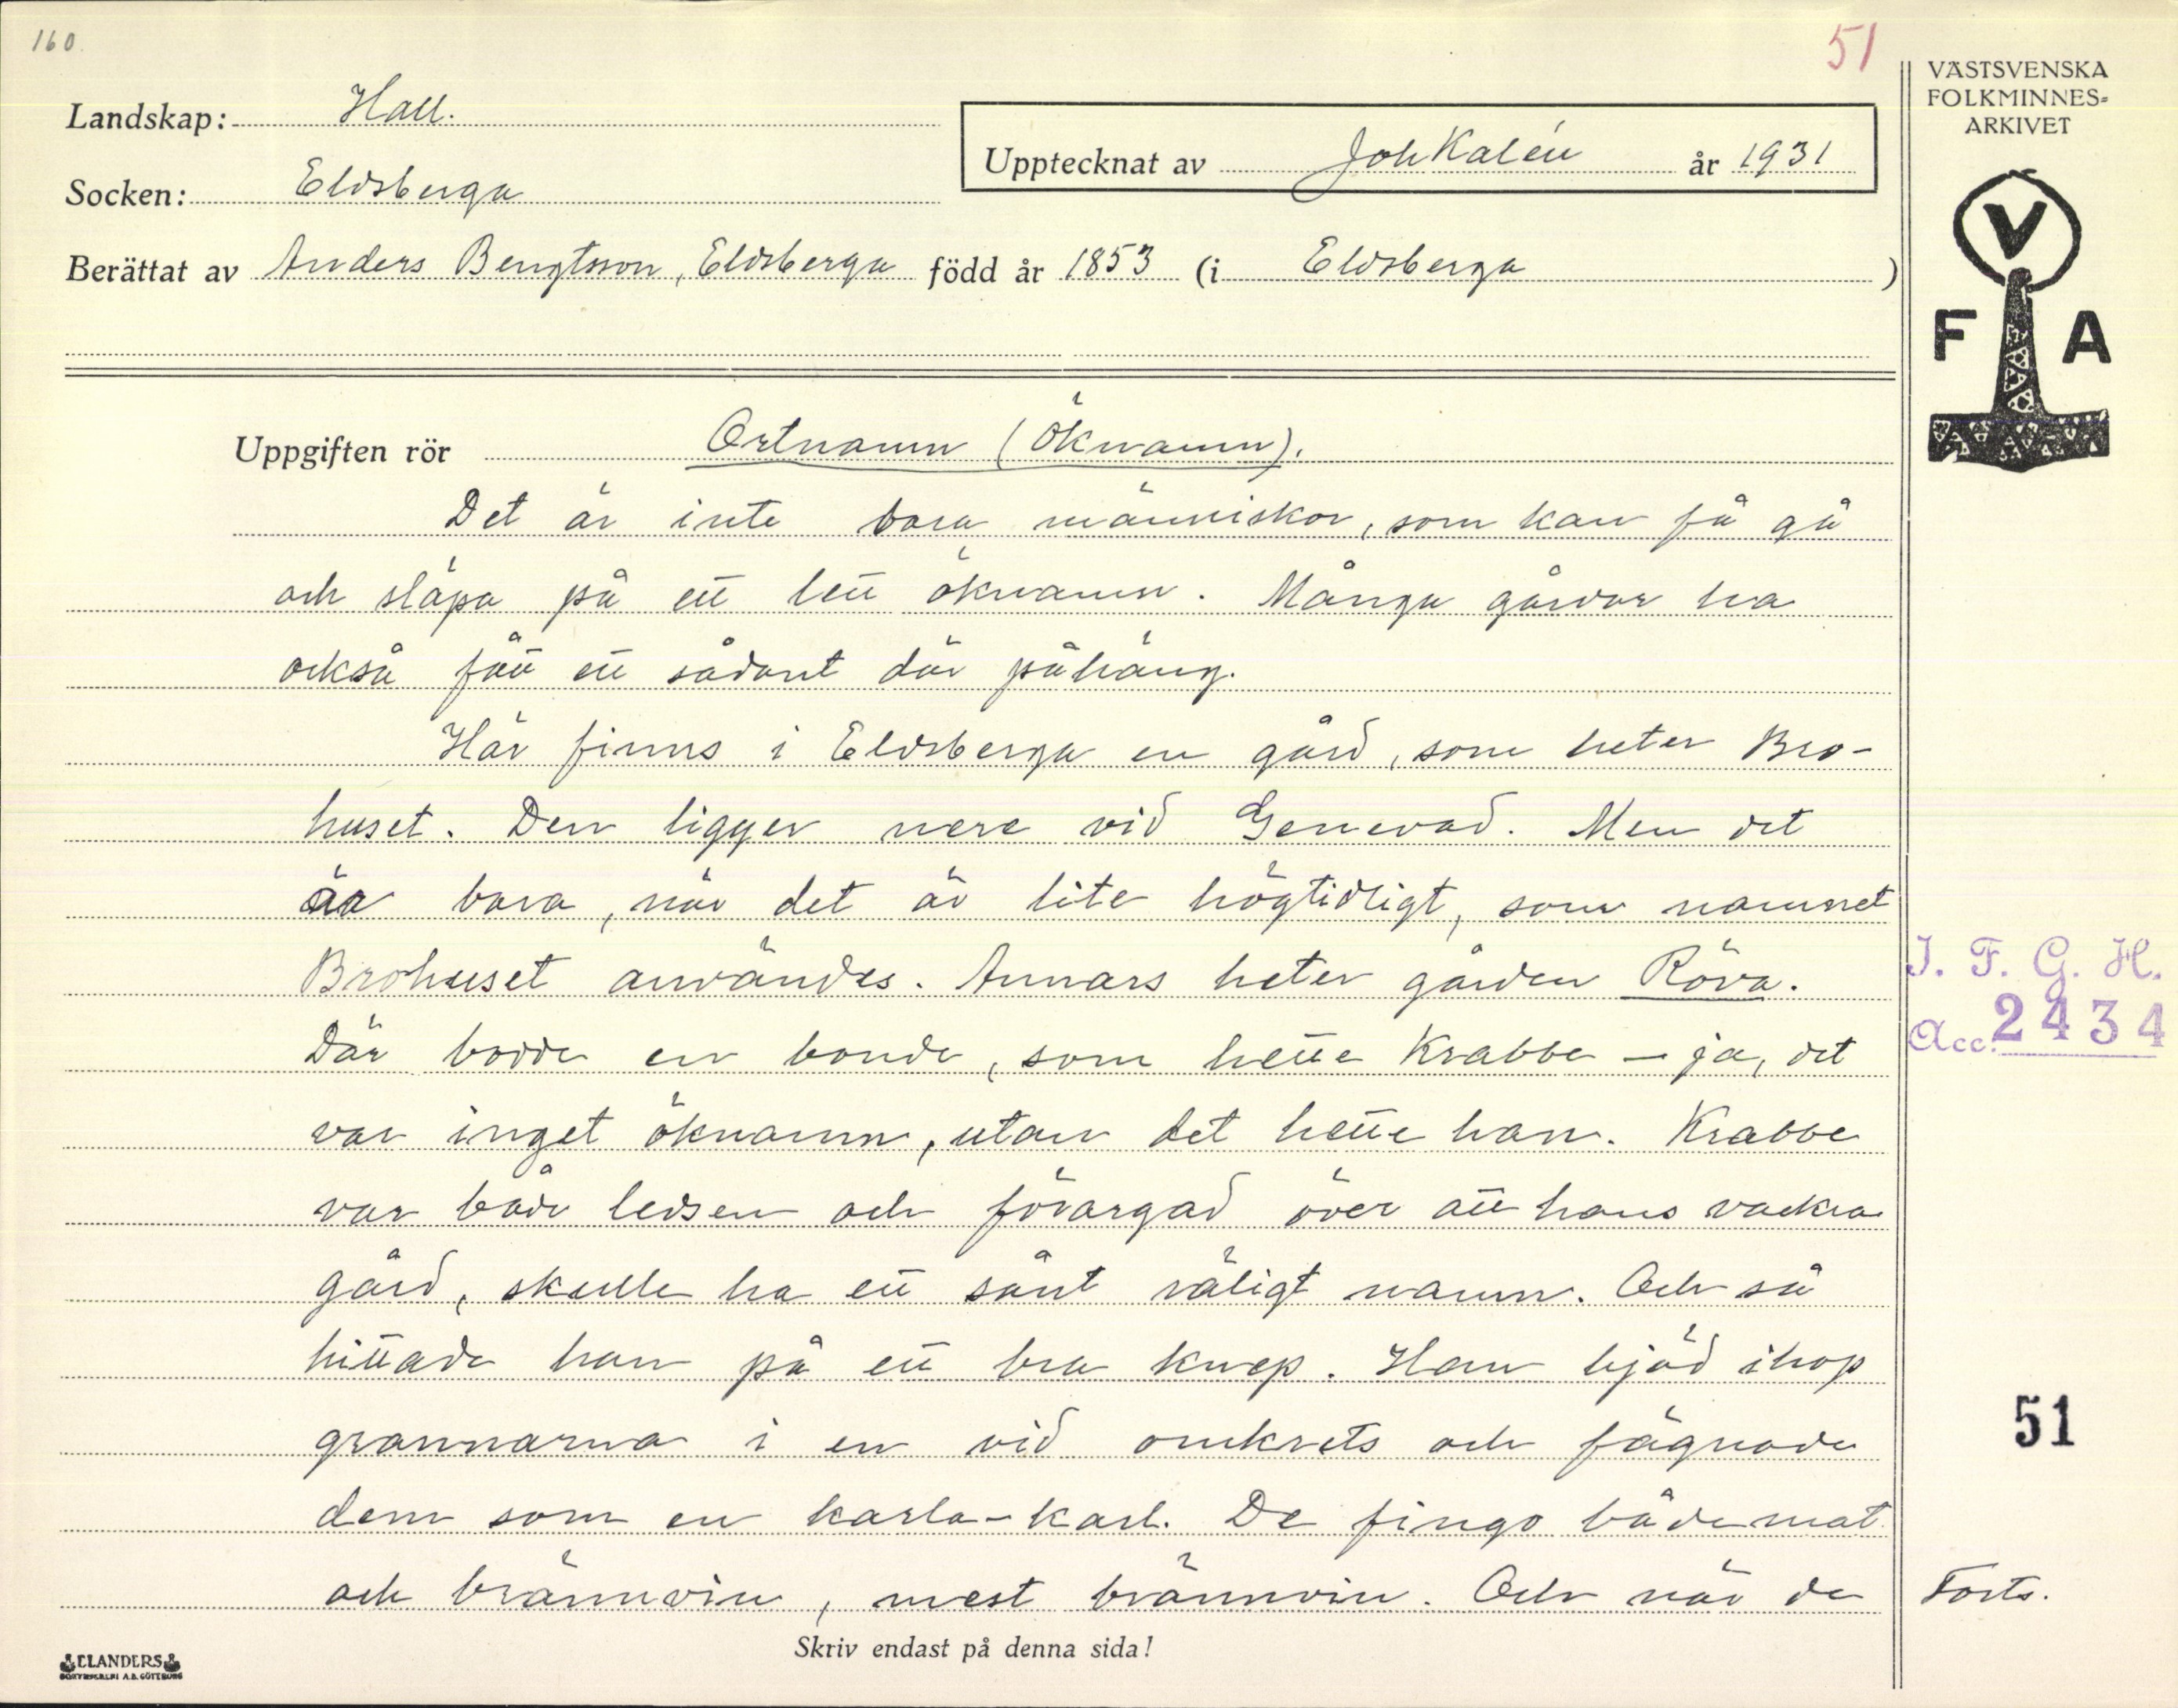 160
51
VÄSTSVENSKA
FOLKMINNES-
ARKIVET
Landskap: Hall.
Upptecknat av Joh Kalén år 1931
Socken: Eldsberga
Berättat av Anders Bengtsson, Eldsberga född år 1853 (i Eldsberga)
V
F A
Uppgiften rör Ortnamn (Öknamn).
Det är inte bara människor, som kan få gå
och släpa på ett lett öknamn. Många gårdar ha
också fått ett sådant där påhäng.
Här finns i Eldsberga en gård, som heter Bro-
huset. Den ligger nere vid Genevad. Men det
är bara, när det är lite högtidligt, som namnet
Brohuset användes. Annars heter gården Röva.
Där bodde en bonde, som hette Krabbe – ja, det
var inget öknamn, utan det hette han. Krabbe
var både ledsen och förargad över att hans vackra
gård, skulle ha ett sånt räligt namn. Och så
hittade han på ett bra knep. Han bjöd ihop
grannarna i en vid omkrets och fägnade
dem som en karla-karl. De fingo både mat
och brännvin, mest brännvin. Och när de
I. F. G. H.
Acc. 2434
51
Forts.
Skriv endast på denna sida!
ELANDERS
BOKTRYCKERI A.B. GÖTEBORG